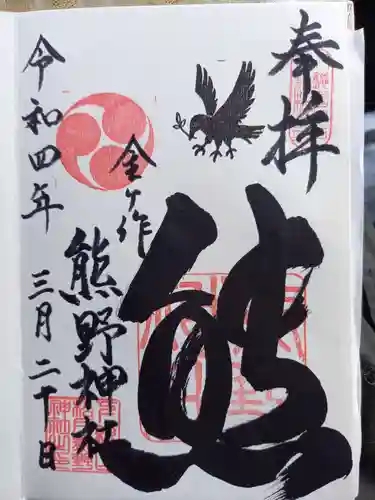 奉拝
熊
金ケ作
熊野神社
令和四年 三月二十日